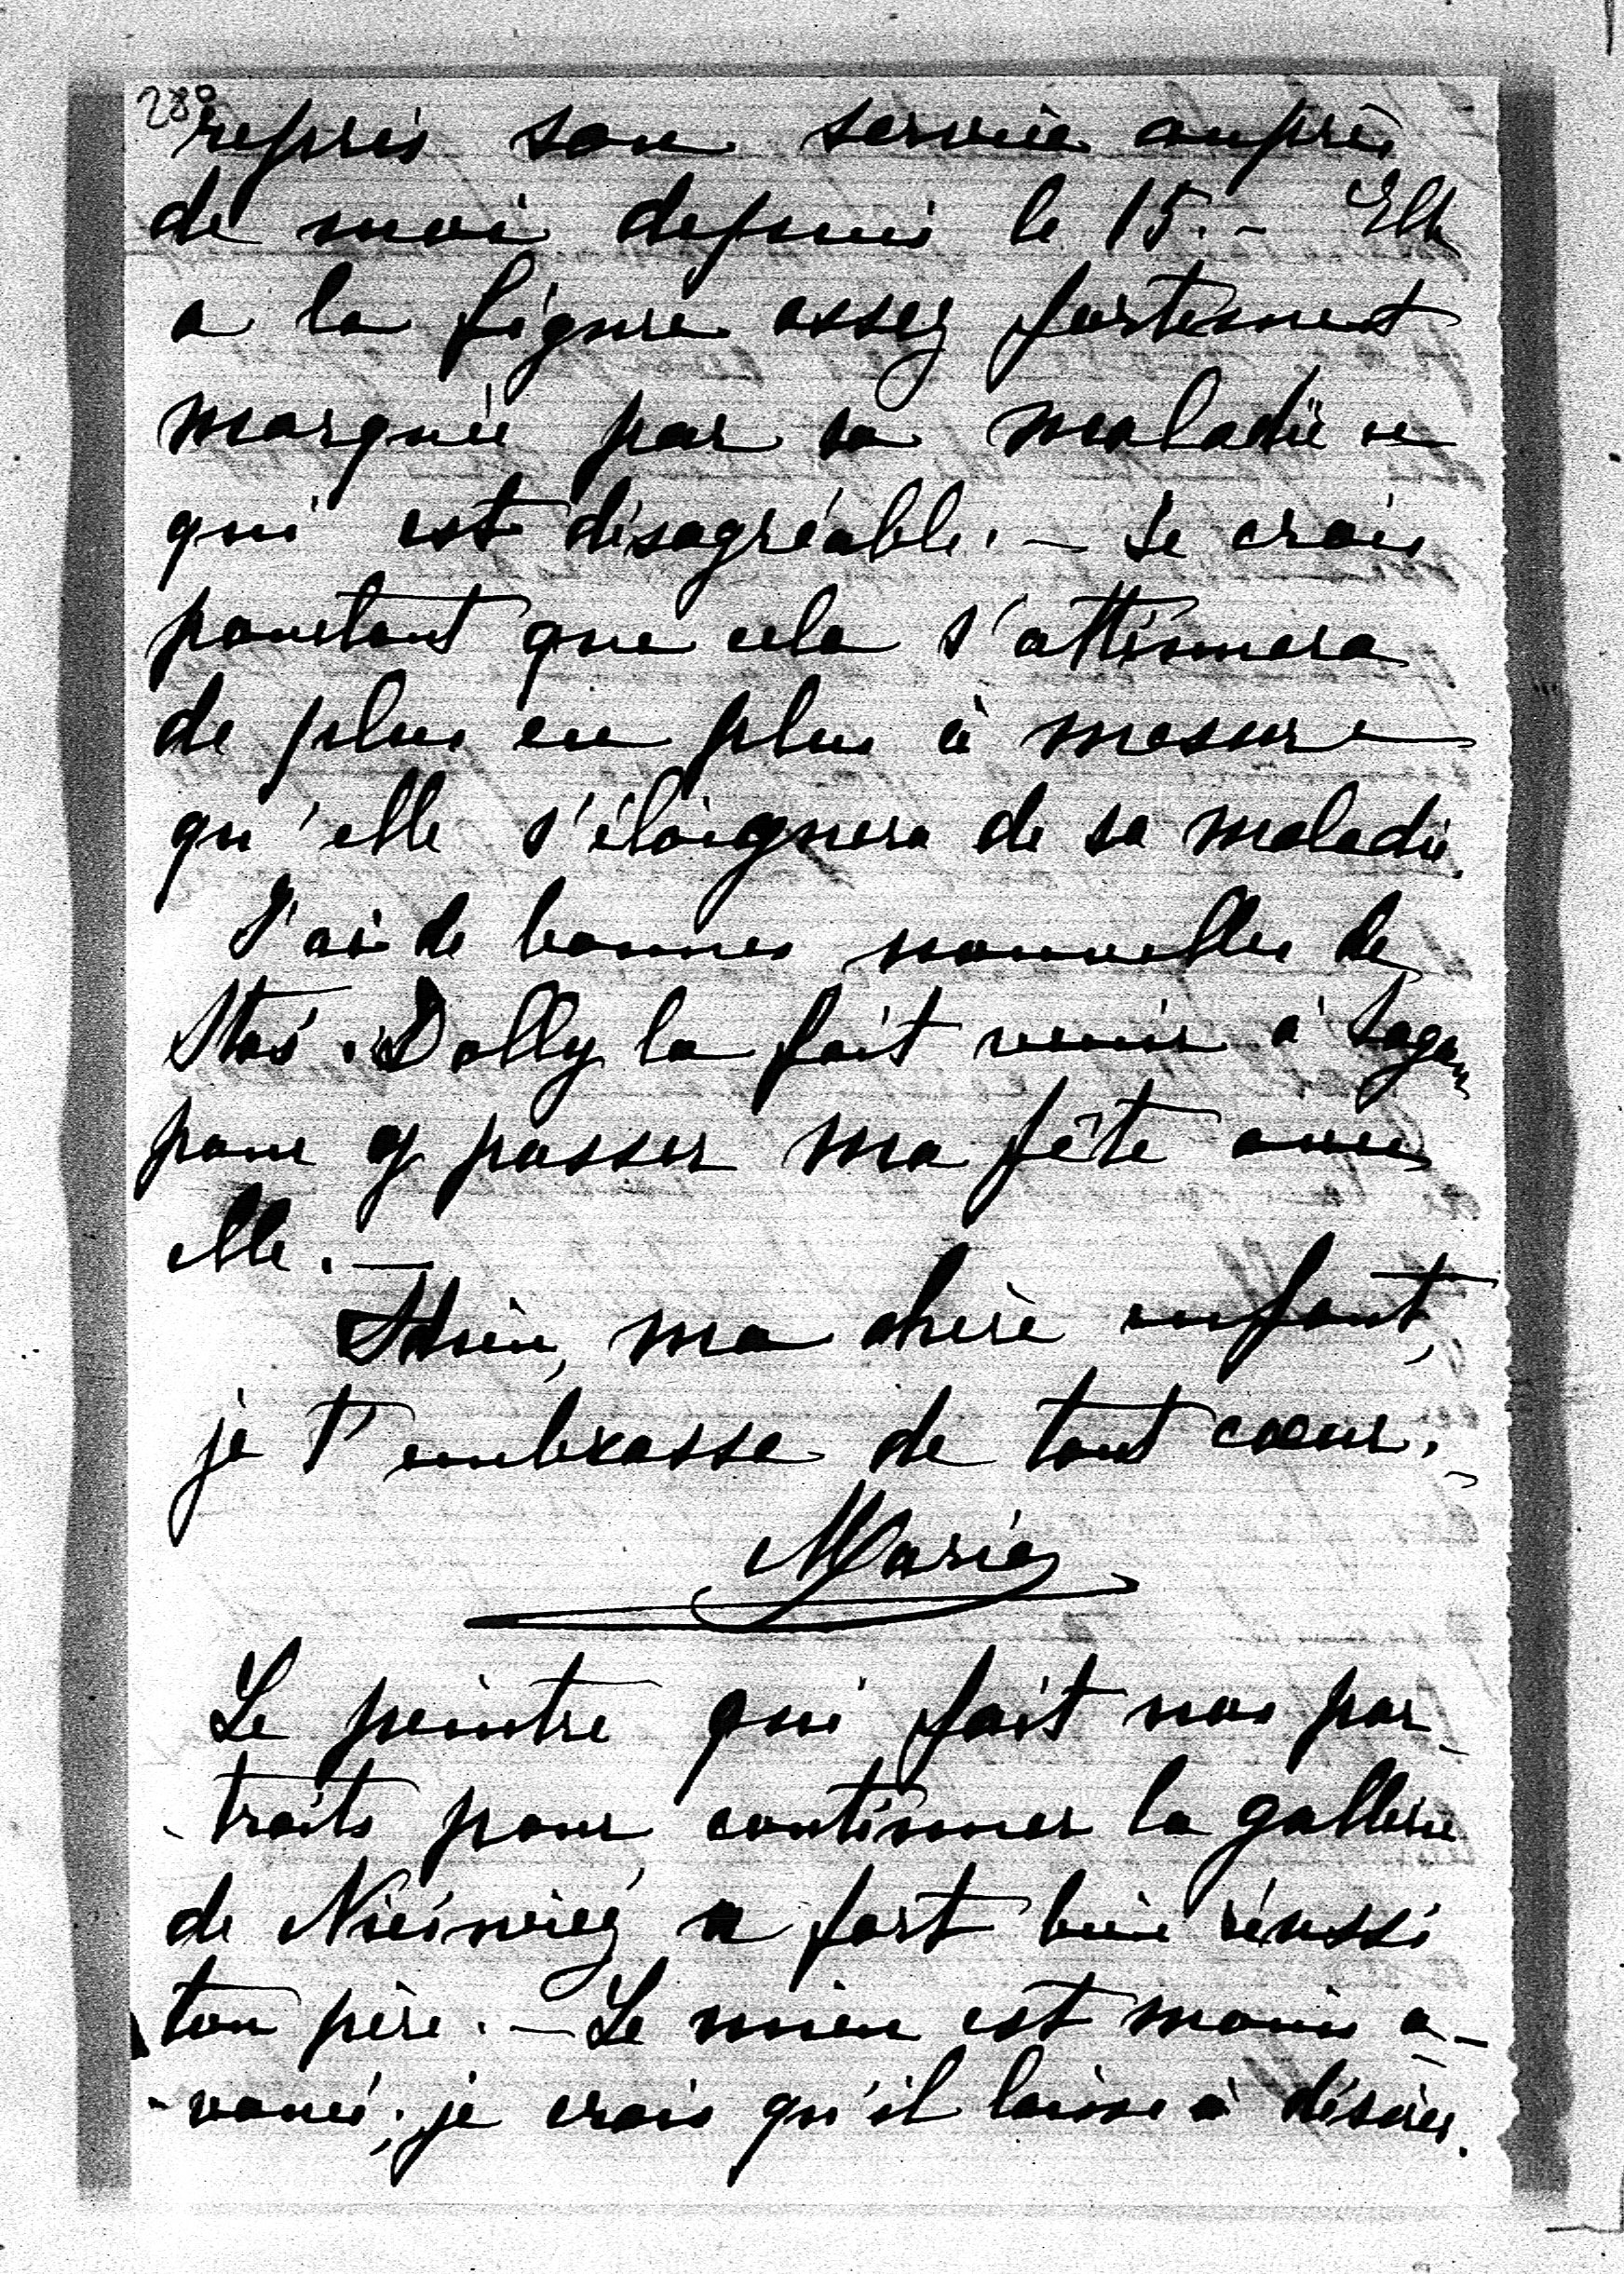 280
repris son service auprès
de moi depuis le 15. - Elle
a la figure assez fortement
marquée par sa maladie ce
qui est désagréable. — Je crois
pourtant que cela s'attenuera
de plus en plus à mesure
qu'elle s'éloignera de sa maladie.
J'ai de bonnes nouvelles de
Stas. Dolly la fait venir à Sagan
pour y passer ma fête avec
elle. —
Adieu, ma chère enfant,
je t'embrasse de tout coeur. -
Marie
Le peintre qui fait nos por-
-traits pour continuer la gallerie
de Nieśwież a fort bien réussi
ton père. — Le mien est moins a-
-vancé; je crois qu'il laisse à désirer.